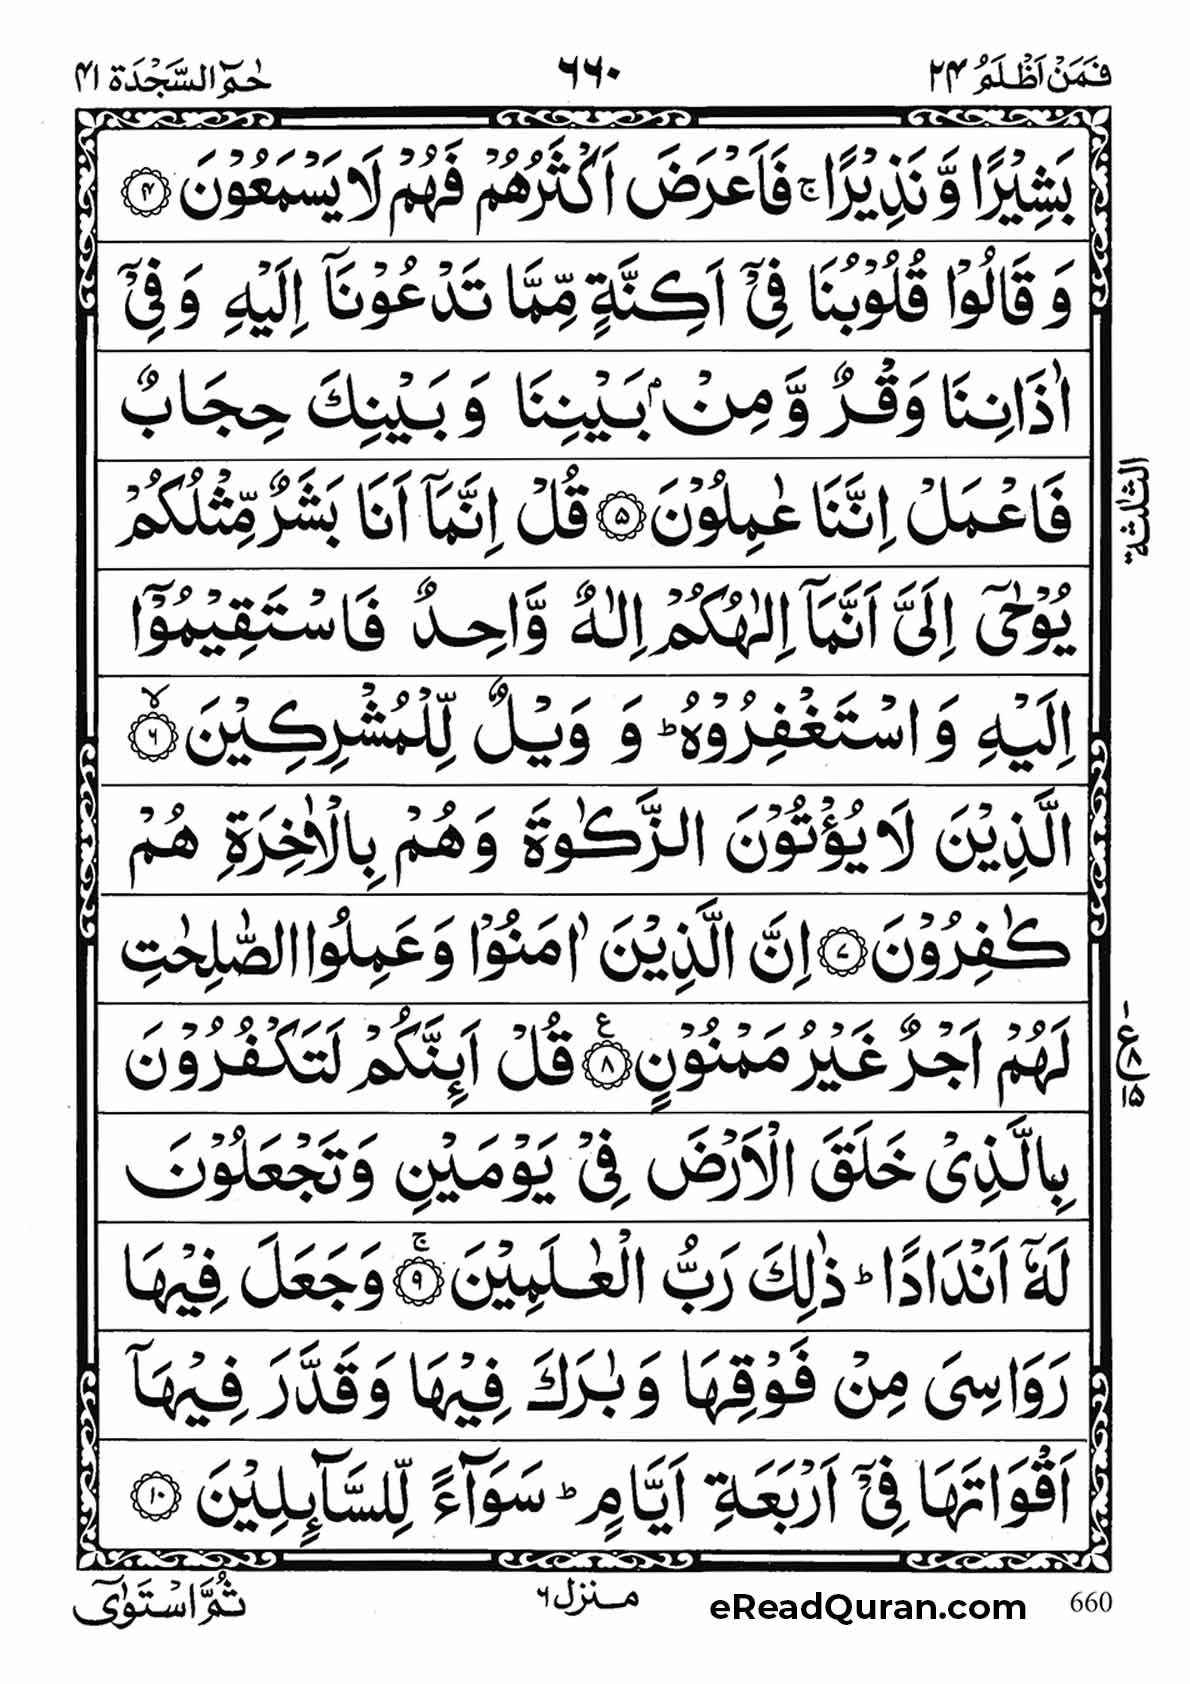 فَمَنْ اَظْلَمُ ۲۴ ۶۶۰ حٰمٓ السَّجْدَة ۴۱
بَشِيْرًا وَّ نَذِيْرًا ۚ فَاَعْرَضَ اَكْثَرُهُمْ فَهُمْ لَا يَسْمَعُوْنَ ۴
وَ قَالُوْا قُلُوْبُنَا فِيْۤ اَكِنَّةٍ مِّمَّا تَدْعُوْنَاۤ اِلَيْهِ وَ فِيْۤ
اٰذَانِنَا وَقْرٌ وَّ مِنْۢ بَيْنِنَا وَ بَيْنِكَ حِجَابٌ
فَاعْمَلْ اِنَّنَا عٰمِلُوْنَ ۵ قُلْ اِنَّمَاۤ اَنَا بَشَرٌ مِّثْلُكُمْ
يُوْحٰۤى اِلَيَّ اَنَّمَاۤ اِلٰهُكُمْ اِلٰهٌ وَّاحِدٌ فَاسْتَقِيْمُوْۤا
اِلَيْهِ وَ اسْتَغْفِرُوْهُ ؕ وَ وَيْلٌ لِّلْمُشْرِكِيْنَ ۙ ۶
الَّذِيْنَ لَا يُؤْتُوْنَ الزَّكٰوةَ وَ هُمْ بِالْاٰخِرَةِ هُمْ
كٰفِرُوْنَ ۷ اِنَّ الَّذِيْنَ اٰمَنُوْا وَ عَمِلُوا الصّٰلِحٰتِ
لَهُمْ اَجْرٌ غَيْرُ مَمْنُوْنٍ ۸ ع قُلْ اَىِٕنَّكُمْ لَتَكْفُرُوْنَ
بِالَّذِيْ خَلَقَ الْاَرْضَ فِيْ يَوْمَيْنِ وَ تَجْعَلُوْنَ
لَهٗۤ اَنْدَادًا ؕ ذٰلِكَ رَبُّ الْعٰلَمِيْنَ ۚ ۹ وَ جَعَلَ فِيْهَا
رَوَاسِيَ مِنْ فَوْقِهَا وَ بٰرَكَ فِيْهَا وَ قَدَّرَ فِيْهَاۤ
اَقْوَاتَهَا فِيْۤ اَرْبَعَةِ اَيَّامٍ ؕ سَوَآءً لِّلسَّآىِٕلِيْنَ ۱۰
الثلٰثة
ع ۱ ۸ ۱۵
ثُمَّ اسْتَوٰۤى منزل ۶ eReadQuran.com 660